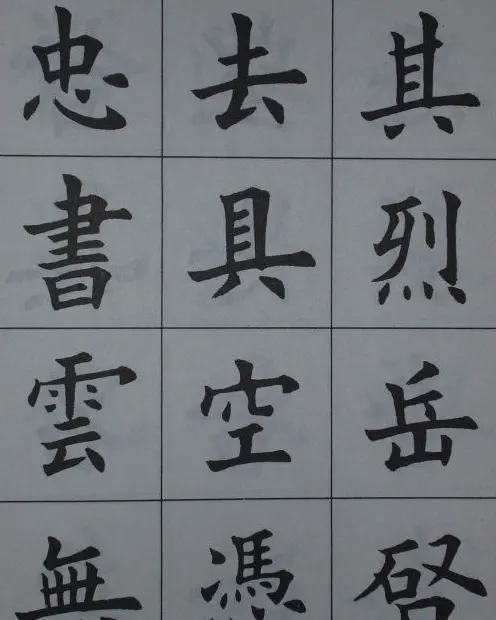 忠去其
書具烈
雲空岳
無憑